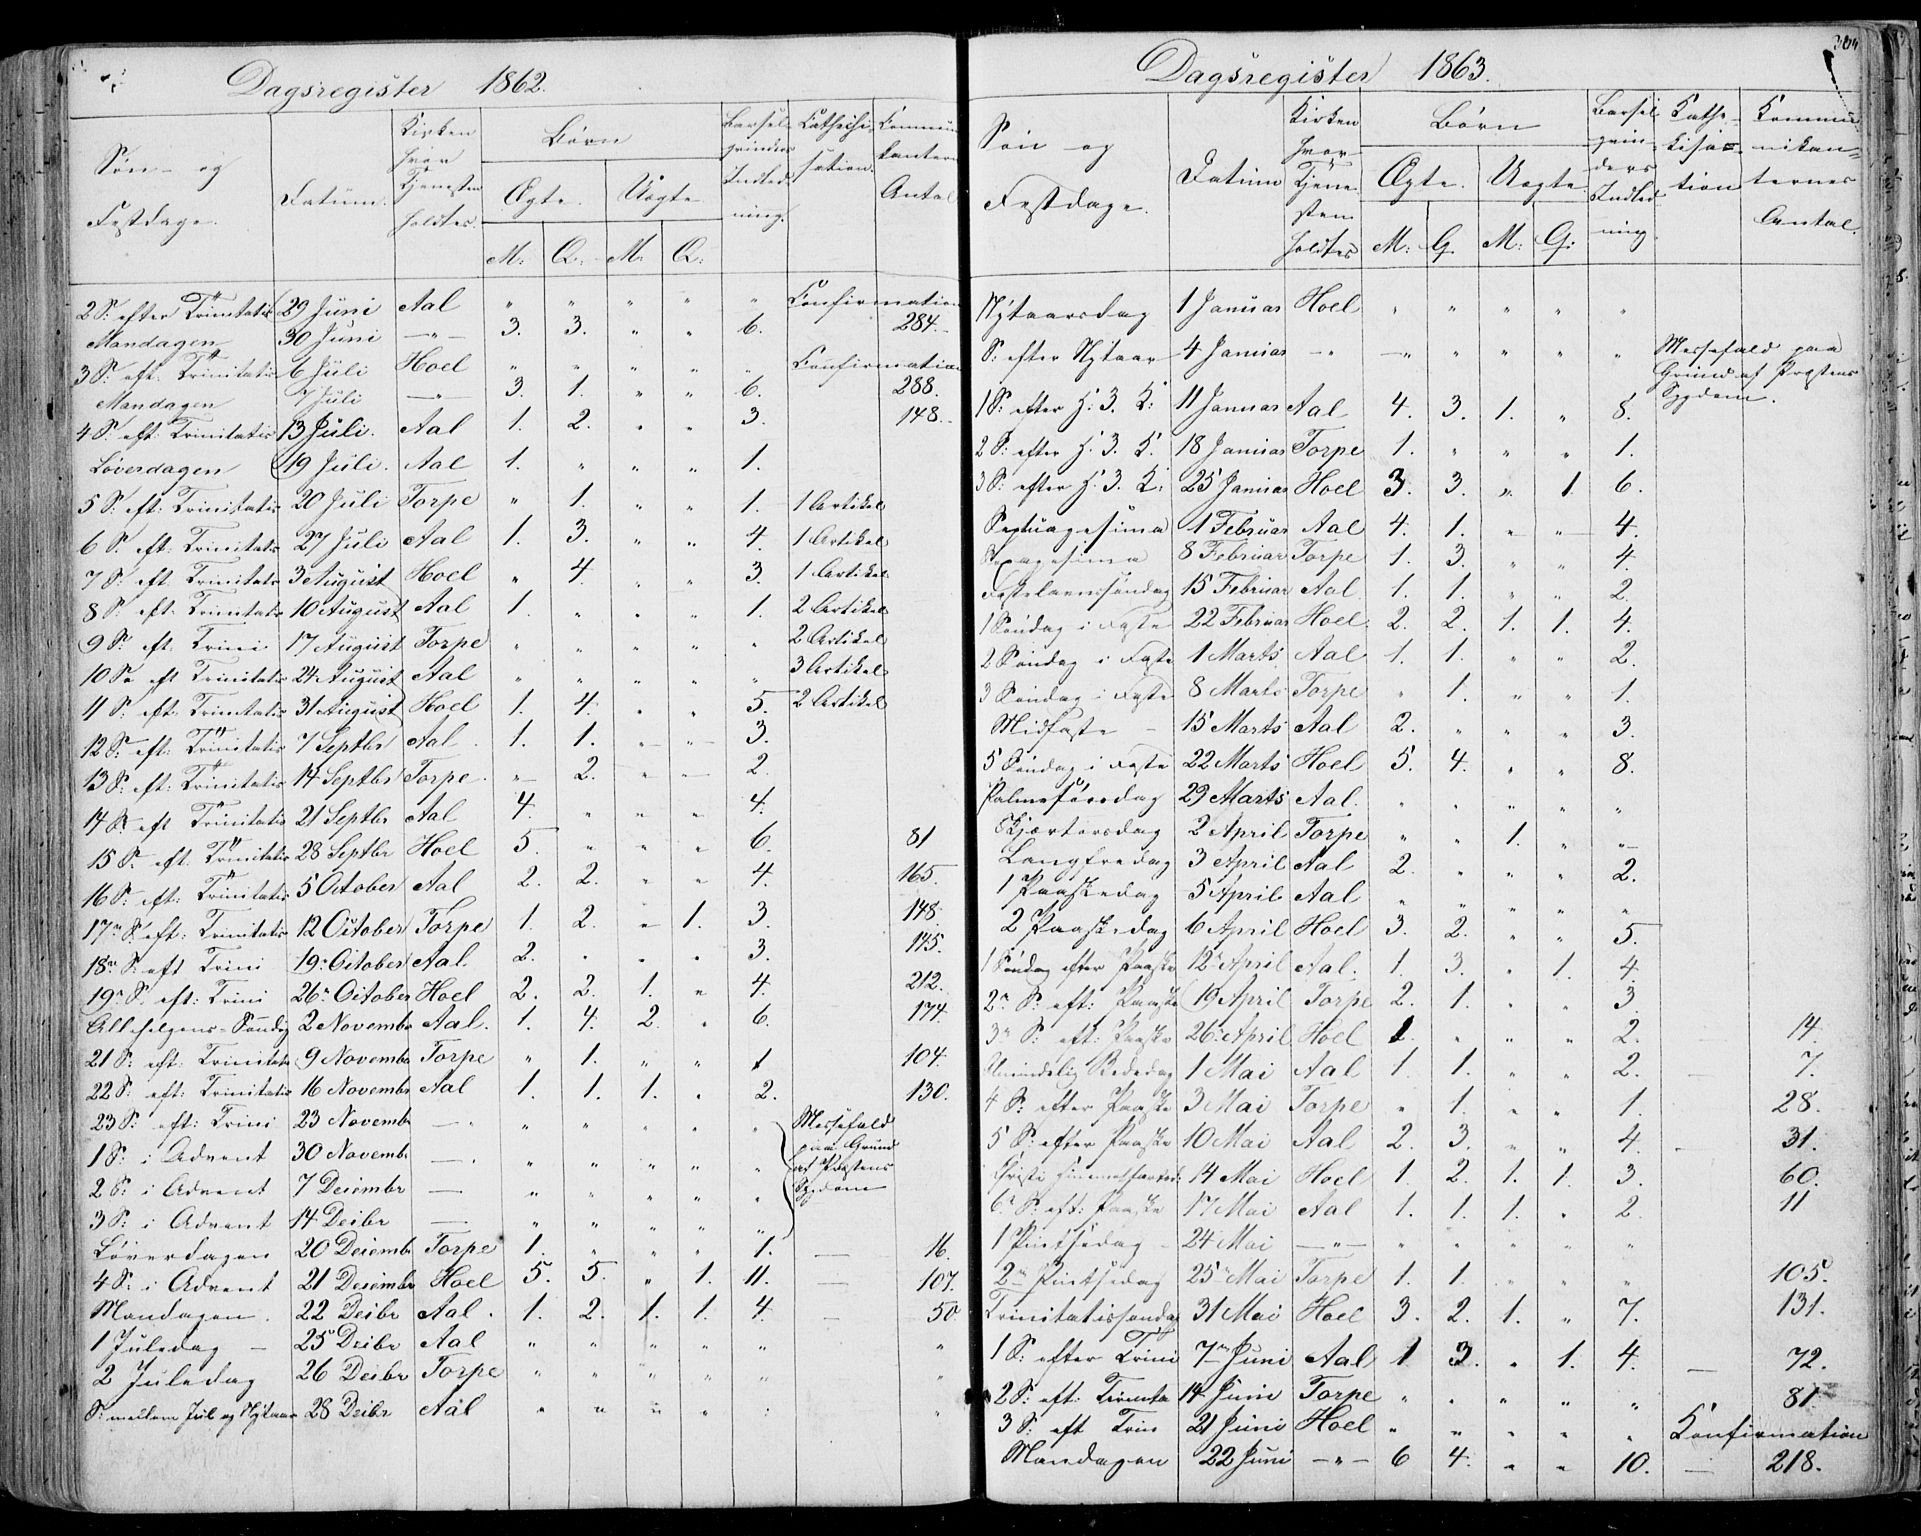 Dagsregister 1862.
Søn- og Festdage. | Datum. | Kirken hvor Tjenesten holdtes. | Børn | Ægte. M: Q: | Uægte M: Q: | Barsel-qvinders Indled-ning. | Cathechi-sation. | Commun-kanternes Antal
2 S: efter Trinitatis | 29 Juni | Aal | " | " | " | " | " | Confirmation
Mandagen | 30 Juni | —"— | 3. | 3. | " | " | 6. | | 284.
3 S: eft. Trinitatis | 6 Juli | Hoel | " | " | " | " | " | Confirmation
Mandagen | 7 Juli | —"— | 3. | 1. | " | " | 6. | | 288.
4 S: eft: Trinitatis | 13 Juli. | Aal | 1. | 2. | " | " | 3. | | 148.
Løverdagen | 19 Juli. | Aal | 1. | " | " | " | 1.
5 S. eft: Trinitatis | 20 Juli | Torpe | " | 1. | " | " | 1. | 1 Artikel
6 S. eft: Trinitatis | 27 Juli | Aal | 1. | 3. | " | " | 4. | 1 Artikel
7 S: eft. Trinitatis | 3 August | Hoel | " | 4. | " | " | 3. | 1 Artikel
8 S. eft. Trinitatis | 10 August | Aal | 1. | " | " | " | 1. | 2 Artikel
9 S. eft. Trini | 17 August | Torpe | " | " | " | " | " | 2 Artikel
10 S. eft Trinitatis | 24 August | Aal | " | " | " | " | " | 3 Artikel
11 S: eft. Trinitatis | 31 August | Hoel | 1. | 4. | " | " | 5. | 2 Artikel
12 S: eft: Trinitatis | 7 Septbr | Aal | 1. | 1. | " | " | 3.
13 S: eft: Trinitatis | 14 Septbr | Torpe. | " | 2. | " | " | 2.
14 S: eft Trinitatis | 21 Septbr | Aal | 4. | " | " | " | 4.
15 S. eft. Trinitatis | 28 Septbr | Hoel | 5. | " | " | " | 6. | | 81
16 S: eft: Trinitatis | 5 October | Aal | 2. | 2. | " | " | 4. | | 165.
17 S. eft: Trinitatis | 12 October | Torpe | 1. | 2. | " | 1. | 3. | | 148
18 S: eft Trini | 19 October | Aal. | 2. | " | " | " | 3. | | 145.
19 S. eft: Trini | 26 October | Hoel | 2. | 2. | 1. | " | 4. | | 212.
Allehelgens-Søndag | 2 Novembr | Aal. | 1. | 4. | 2. | " | 6. | | 174.
21 S: eft. Trinitatis | 9 Novembr | Torpe | " | 1. | " | " | 1 | | 104.
22 S: eft: Trinitatis | 16 Novembr | Aal | 1. | 1. | 1. | " | 2. | | 130.
23 S: eft: Trini | 23 Novembr | — | " | " | " | " | " | Messefald
1 S: i Advent | 30 Novembr | — | " | " | " | " | " | paa Grund
2 S: i Advent | 7 Decembr | — | " | " | " | " | " | af Præstens
3 S: i Advent | 14 Decbr | — | " | " | " | " | " | Sygdom
Løverdagen | 20 Decembr | Torpe | 1. | " | " | " | 1. | — | 16.
4 S: i Advent | 21 Decembr | Hoel | 5. | 5. | " | 1. | 11. | — | 107.
Mandagen. | 22 Decbr | Aal. | 1. | 2. | 1. | 1. | 4. | — | 50
1 Juledag — | 25 Decbr | Aal | " | " | " | " | " | | "
2 Juledag | 26 Decbr | Torpe | " | " | " | " | " | | "
S: mellem Jul og Nytaar | 28 Decbr | Aal | " | " | " | " | : | | "
Dagsregister 1863.
Søn og Festdage. | Datum | Kirken hvor Tjene-sten holdtes | Børn | Ægte. M: Q. | Uægte. M: Q: | Barsel-qvin-ders Indled-ning. | Cathe-kisa-tion | Kommu-nikan-ternes Antal.
Nytaarsdag | 1 Januar | Hoel | " | " | " | " | "
S: efter Nytaar | 4 Januar | —"— | " | " | " | " | " | Messefald paa Grund af Præstens Sygdom.
1 S: efter H. 3. K: | 11 Januar | Aal | 4. | 3. | 1. | " | 8.
2 S: efter H. 3. K. | 18 Januar | Torpe | 1. | " | " | " | 1.
3 S: efter H. 3. K: | 25 Januar | Hoel | 3. | 3. | " | 1. | 6.
Septuagesima | 1 Februar | Aal | 4. | 1. | " | " | 4.
Sexagesima | 8 Februar | Torpe | 1. | 3. | " | " | 4.
Fastelavnssøndag | 15 Februar | Aal. | 1. | 1. | " | " | 2.
1 Søndag i Faste | 22 Februar | Hoel. | 2. | 2. | 1. | 1. | 4.
2 Søndag i Faste | 1 Marts | Aal | 1. | 1. | " | " | 2.
3 Søndag i Faste | 8 Marts | Torpe | " | 1. | " | " | 1.
Midfaste — | 15 Marts | Aal | 2. | " | " | " | 3.
5 Søndag i Faste | 22 Marts | Hoel | 5. | 4. | " | " | 8.
Palmesøndag | 29 Marts | Aal. | " | " | " | " | "
Skjærtorsdag | 2 April | Torpe | " | " | 1. | " | "
Langfredag | 3 April | Aal | 2. | " | " | " | 2.
1 Paaskedag | 5 April | Aal | " | " | " | " | "
2 Paaskedag | 6 April | Hoel | 3. | 2. | " | " | 5.
1 Søndag efter Paaske | 12 April | Aal. | 1. | 3. | " | 1. | 4.
2 S: eft: Paaske | 19 April | Torpe | 2. | 1. | " | " | 3.
3 S: eft: Paaske | 26 April | Hoel | 1. | " | " | " | 2. | | 14.
Almindelig Bededag | 1 Mai | Aal | 1. | 1. | " | " | 2. | — | 7.
4 S: efter Paaske | 3 Mai | Torpe | " | 1. | " | " | 1. | | 28.
5 S: efter Paaske | 10 Mai | Aal | 2. | 3. | " | " | 4. | — | 31.
Christi Himmelfartsd: | 14 Mai | Hoel | 1. | 2. | 1. | 1. | 3. | | 60.
6 S: eft: Paaske | 17 Mai | Aal | 1. | 1. | 1. | " | 2. | | 11
1 Pintsedag — | 24 Mai | —"— | " | " | " | " | "
2 Pintsedag | 25 Mai | Torpe | 1. | 1. | " | " | " | | 105.
Trinitatissøndag | 31 Mai | Hoel | 3. | 2. | 1. | " | 7. | | 131.
1 S: efter Trini | 7 Juni | Aal | 1 | 3. | " | 1. | 4. | — | 72.
2 S: eft: Trinita | 14 Juni | Torpe | " | " | " | " | " | | 81.
3 S: eft Trin | 21 Juni | Hoel | " | " | " | " | " | Konfirmation
Mandagen | 22 Juni | —"— | 6 | 4. | " | " | 10. | — | 218.